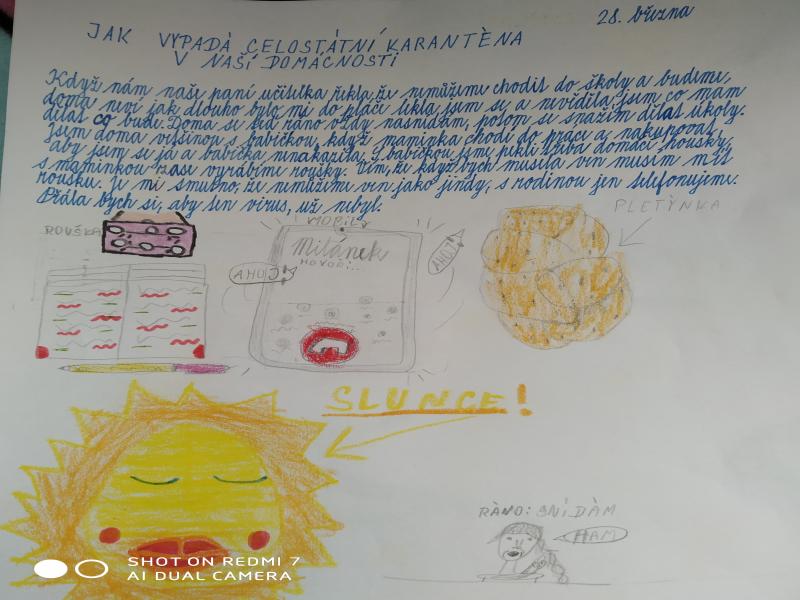 28. března
JAK VYPADÁ CELOSTÁTNÍ KARANTÈNA
V NAŠÍ DOMÁCNOSTI
Když nám naše paní učitelka řekla, že nemůžeme chodit do školy a budeme
doma neví jak dlouho bylo mi do pláče lekla jsem se, a nevěděla jsem co mám
dělat co bude. Doma se teď ráno vždy nasnídám, potom se snažím dělat úkoly.
Jsem doma většinou s babičkou, když maminka chodí do práce a nakupovat,
aby jsem se já a babička nenakazila. S babičkou jsme pekli třeba domácí housky,
s maminkou zase vyrábíme roušky. Vím, že když bych musela ven musím mít
roušku. Je mi smutno, že nemůžeme ven jako jindy, s rodinou jen telefonujeme.
Přála bych si, aby ten virus, už nebyl.
ROUŠKA
MOBIL
PLETÝNKA
Milánek
HOVOR...
AHOJ
AHOJ
SLUNCE!
RÀNO: SNÍDÀM
HAM
SHOT ON REDMI 7
AI DUAL CAMERA